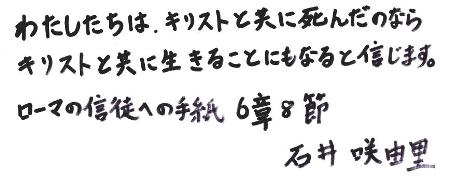 わたしたちは、キリストと共に死んだのなら
キリストと共に生きることにもなると信じます。
ローマの信徒への手紙 6章8節
石井 咲由里